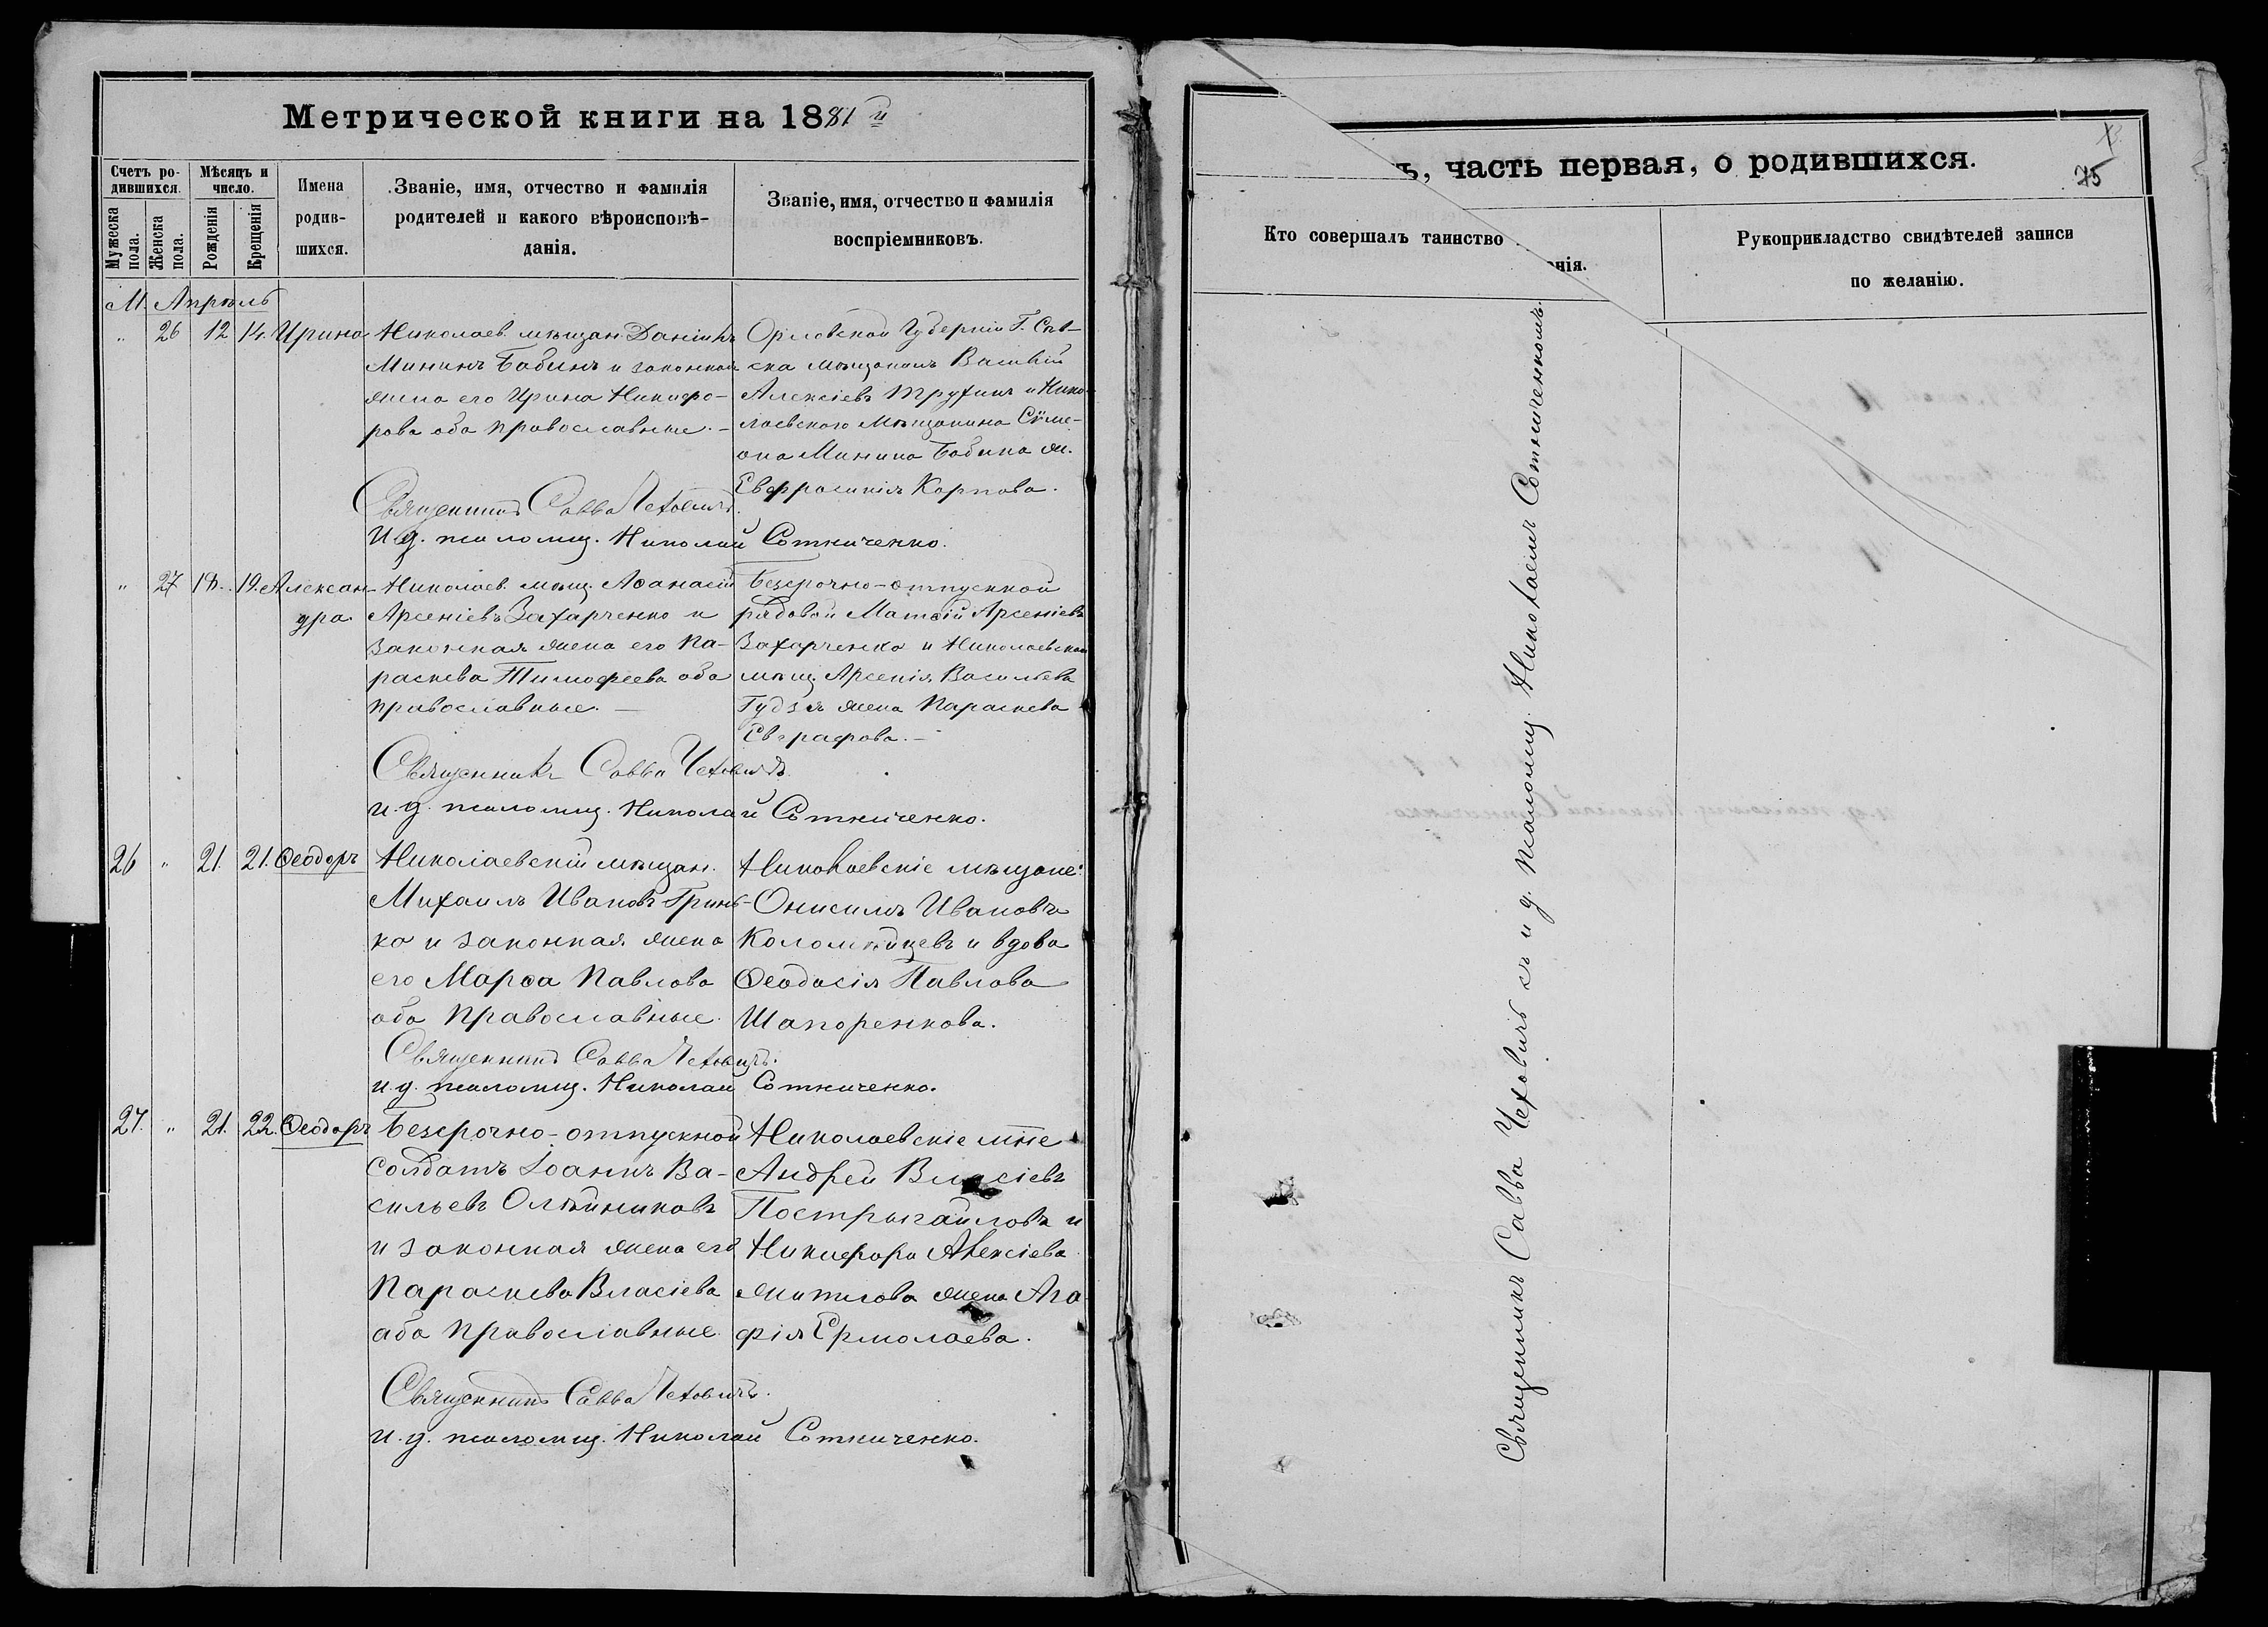 Метрической книги на 1881 й
Счетъ ро-
дившихся.
Мужеска
пола.
Женска
пола.
Мѣсяцъ и
число.
Рожденія
Крещенія
Имена
родив-
шихся.
Званіе, имя, отчество и фамилія
родителей и какого вѣроисповѣ-
данія.
Званіе, имя, отчество и фамилія
воспріемниковъ.
М. Апрѣль
" 26 12 14. Ирина
Николаев. мѣщан. Даніилъ
Мининъ Бабинъ и законная
жена его Ирина Никифо-
рова оба православные. -
Орловской Губерніи Г. Сѣв-
ска мѣщанинъ Василій
Алексіевъ Трухинъ и Нико-
лаевского мѣщанина Сѵме-
она Минина Бабина ж.
Евфросинія Карпова.
Священникъ Савва Чеховичъ.
И. д. псаломщ. Николай Сотниченко.
" 27 18. 19. Алексан-
дра
Николаев. мѣщ. Аѳанасій
Арсеніевъ Захарченко и
законная жена его Па-
раскева Тимофеева оба
православные. -
Безсрочно-отпускной
рядовой Матѳій Арсеніевъ
Захарченко и Николаевской
мѣщ. Арсенія Васильева
Гудзя жена Параскева
Евграфова. -
Священникъ Савва Чеховичъ.
и. д. псаломщ. Николай Сотниченко.
26 " 21. 21. Ѳеодоръ
Николаевскій мѣщан.
Михаилъ Ивановъ Гринь-
ко и законная жена
его Марѳа Павлова
оба православные.
Николаевскіе мѣщане:
Онисимъ Ивановъ
Коломійцевъ и вдова
Ѳеодосія Павлова
Шапоренкова.
Священникъ Савва Чеховичъ.
и. д. псаломщ. Николай Сотниченко.
27. " 21. 22. Ѳеодоръ
Безсрочно-отпускной
солдатъ Іоаннъ Ва-
сильевъ Олѣйниковъ
и законная жена его
Параскева Власіева
оба православные.
Николаевскіе мѣне
Андрей Власіевъ
Пострыгайловъ и
Никифора Алексіева
жена Ага-
фія Ермолаева.
Священникъ Савва Чеховичъ.
и. д. псаломщ. Николай Сотниченко.
ъ, часть первая, о родившихся.
75
Кто совершалъ таинство
енія.
Рукоприкладство свидѣтелей записи
по желанію.
Священникъ Савва Чеховичъ съ и д. псаломщ. Николаемъ Сотниченкомъ.